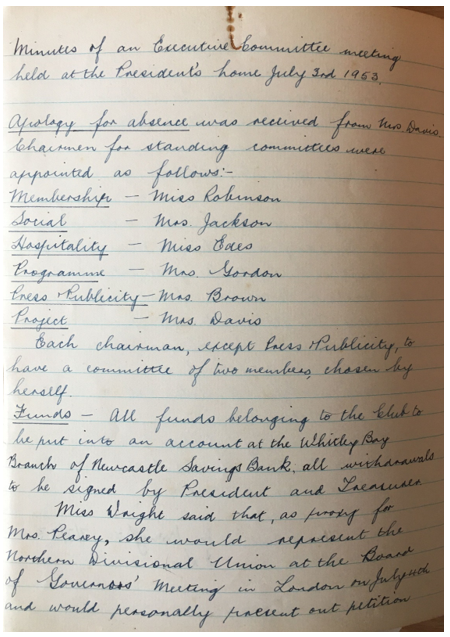 Minutes of an Executive Committee meeting
held at the President's home July 3rd 1953.
Apology for absence was received from Mrs. Davis.
Chairmen for standing committees were
appointed as follows:-
Membership - Miss Robinson
Social - Mrs. Jackson
Hospitality - Miss Edes
Programme - Mrs. Gordon
Press & Publicity - Mrs. Brown
Project - Mrs Davis
Each chairman, except Press & Publicity, to
have a committee of two members, chosen by
herself.
Funds - All funds belonging to the Club to
be put into an account at the Whitley Bay
Branch of Newcastle Savings Bank, all withdrawals
to be signed by President and Treasurer
Miss Wright said that, as proxy for
Mrs. Pearey, she would represent the
Northern Divisional Union at the Board
of Governors' Meeting in London on July 4th
and would personally present out petition